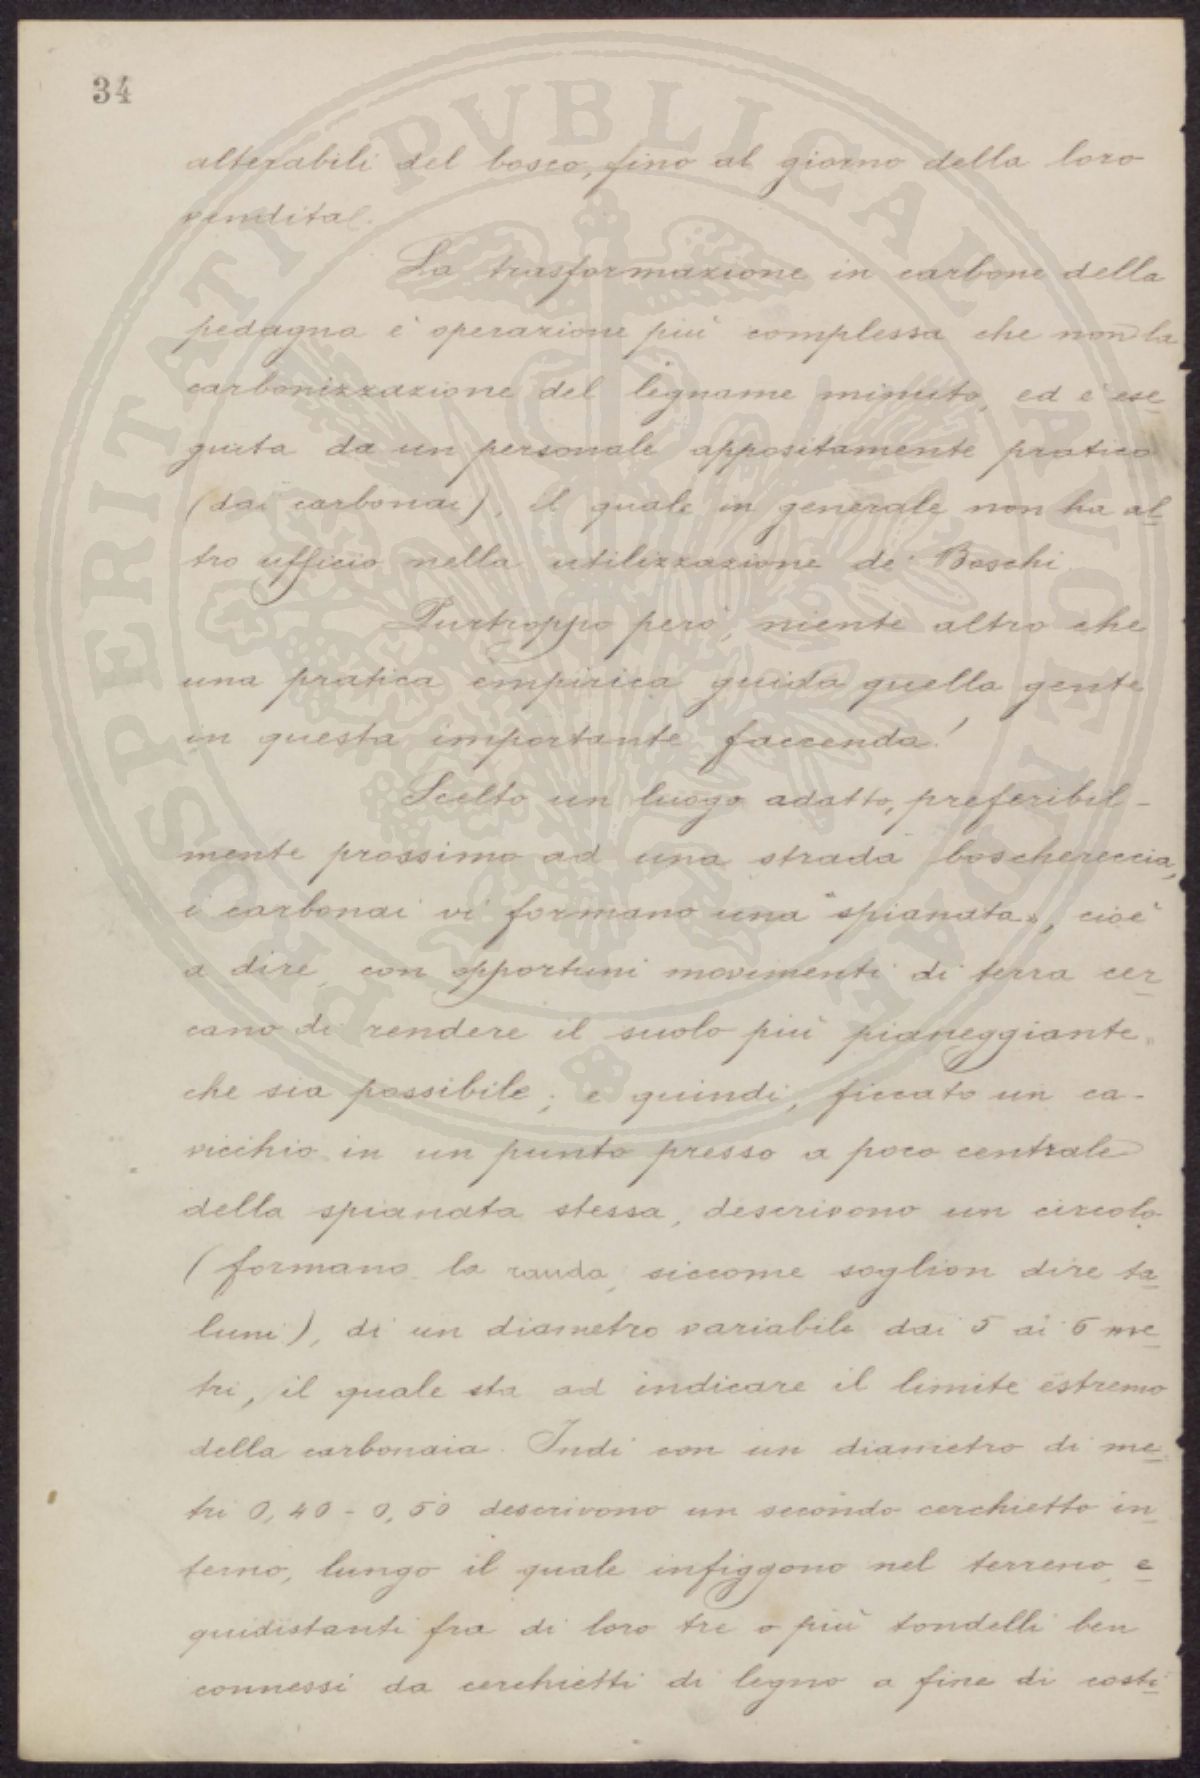 34
alterabili del bosco, fino al giorno della loro
vendita.
La trasformazione in carbone della
pedagna è operazione più complessa che non la
carbonizzazione del legname minuto, ed è ese
guita da un personale appositamente pratico
(dai carbonai), il quale in generale non ha al
tro ufficio nella utilizzazione de' Boschi.
Purtroppo però, niente altro che
una pratica empirica guida quella gente
in questa importante faccenda!
Scelto un luogo adatto, preferibil-
mente prossimo ad una strada boschereccia,
i carbonai vi formano una "spianata", cioè
a dire, con opportuni movimenti di terra cer
cano di rendere il suolo più pianeggiante
che sia possibile; e quindi, ficcato un ca-
vicchio in un punto presso a poco centrale
della spianata stessa, descrivono un circolo
(formano la rauda, siccome soglion dire ta
luni), di un diametro variabile dai 5 ai 6 me
tri, il quale sta ad indicare il limite estremo
della carbonaia. Indi con un diametro di me
tri 0,40 - 0,50 descrivono un secondo cerchietto in
terno, lungo il quale infiggono nel terreno, e
quidistanti fra di loro tre o più tondelli ben
connessi da cerchietti di legno a fine di costi
PROSPERITATI PUBLICAE AUGENDAE